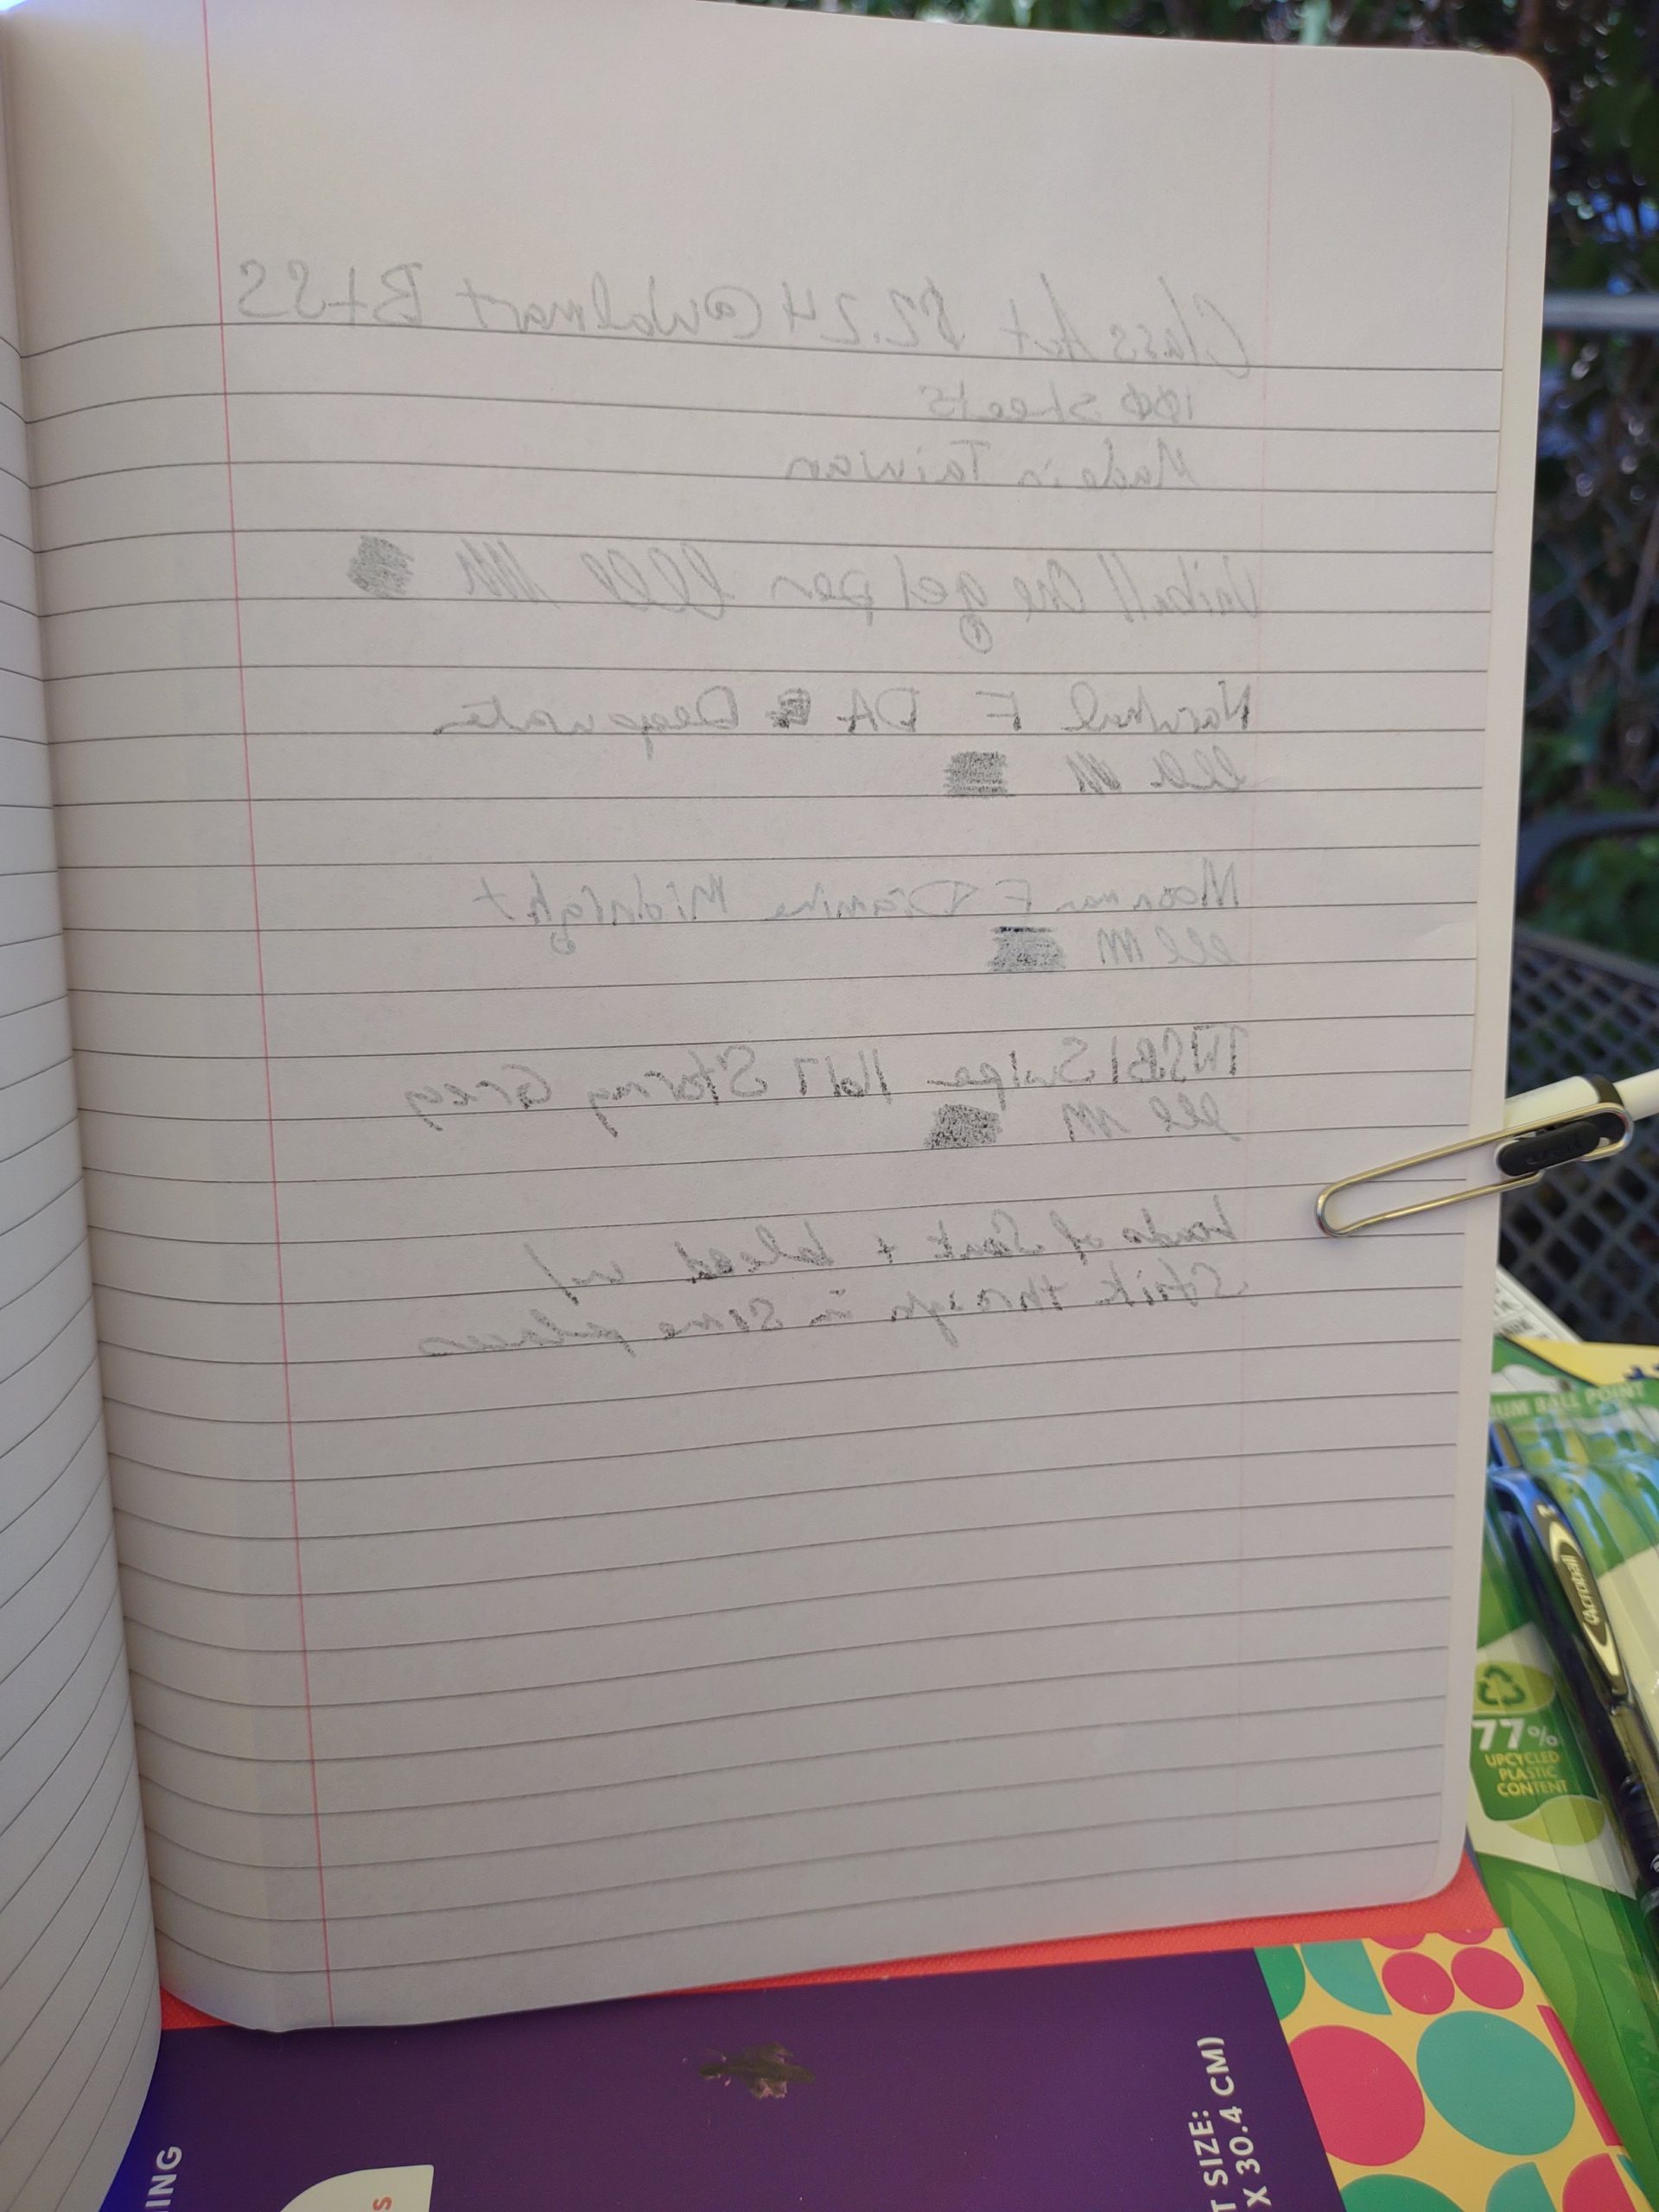 Class Act $2.24 @Walmart BtSS
100 sheets
Made in Taiwan
Uniball One gel pen llll MM
Narwhal F DA Deepwater
lll M
Moonman F Diamine Midnight
lll M
TWSBI Swipe 1617 Stormy Grey
lll M
Loads of Sank + bleed w/
Strik through in some places
UM BALL POINT
Acroball
77%
UPCYCLED
PLASTIC
CONTENT
T SIZE:
X 30.4 CM)
ING
S